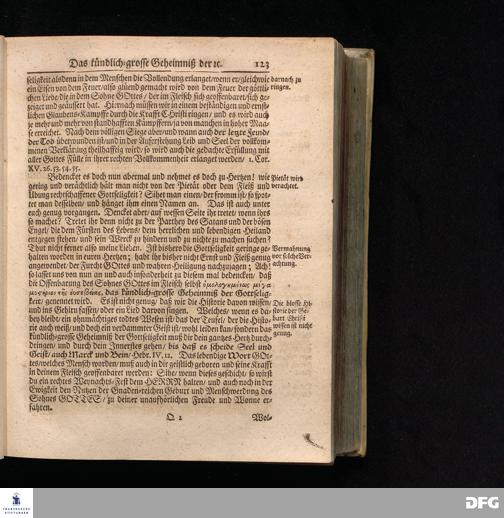 Das kündlich-grosse Geheimniß der ꝛc. 123
seligkeit alsdenn in dem Menschen die Vollendung erlanget/wenn er/gleichwie
ein Eisen von dem Feuer/also glüend gemacht wird von dem Feuer der göttli-
chen Liebe/die in dem Sohne GOttes/ der im Fleisch sich geoffenbaret/sich ge-
zeiget und geäussert hat. Hiernach müssen wir in einem beständigen und ernst-
lichen Glaubens-Kampffe durch die Krafft Christi ringen/ und es wird auch
je mehr und mehr von standhafften Kämpffern/ja von manchen in hoher Maas-
se erreichet. Nach dem völligen Siege aber/und wann auch der letzte Feind/
der Tod überwunden ist/und in der Aufferstehung Leib und Seel der vollkom-
menen Verklärung theilhafftig wird/ so wird auch die gedachte Erfüllung mit
aller Gottes Fülle in ihrer rechten Vollkommenheit erlanget werden/ 1. Cor.
XV. 26. 53. 54. 55.
darnach zu
ringen.
Bedencket es doch nun abermal und nehmet es doch zu Hertzen! wie
gering und verächtlich hält man nicht von der Pietät oder dem Fleiß und
Übung rechtschaffener Gottseligkeit? Sihet man einen/ der fromm ist/ so spot-
tet man desselben/ und hänget ihm einen Namen an. Das ist auch unter
euch genug vorgangen. Dencket aber/ auf wessen Seite ihr tretet/ wenn ihrs
so machet? Tretet ihr denn nicht zu der Parthey des Satans und der bösen
Engel/ die dem Fürsten des Lebens/ dem herrlichen und lebendigen Heiland
entgegen stehen/ und sein Werck zu hindern und zu nichte zu machen suchen?
Thut nicht ferner also meine Lieben. Ist bishero die Gottseligkeit geringe ge-
halten worden in euren Hertzen; habt ihr bisher nicht Ernst und Fleiß genug
angewendet der Furcht GOttes und wahren Heiligung nachzujagen; Ach!
so lasset uns von nun an und auch insonderheit zu diesem mal bedencken/ daß
die Offenbarung des Sohnes GOttes im Fleisch selbst ὁμολογουμένως μέγα
μυστήριον τῆς εὐσεβείας, das kündlich-grosse Geheimniß der Gottselig-
keit/ genennet wird. Es ist nicht genug/ daß wir die Historie davon wissen/
und ins Gehirn fassen/ oder ein Lied davon singen. Welches/ wenn es da-
bey bleibt/ ein ohnmächtiges todtes Wesen ist/ das der Teufel/ der die Histo-
rie auch weiß/ und doch ein verdammter Geist ist/ wohl leiden kan/ sondern das
kündlich-grosse Geheimniß der Gottseligkeit muß dir dein gantzes Hertz durch-
dringen/ und durch dein Innerstes gehen/ bis daß es scheide Seel und
Geist/ auch Marck und Bein/ Hebr. IV, 12. Das lebendige Wort GOt-
tes/welches Mensch worden/ muß auch in dir geistlich geboren und seine Krafft
in deinem Fleisch geoffenbaret werden: Sihe/ wenn dieses geschicht/ so wirst
du ein rechtes Weynachts-Fest dem HERRN halten/ und auch noch in der
Ewigkeit den Nutzen der Gnaden-reichen Geburt und Menschwerdung des
Sohnes GOTTES/ zu deiner unaufhörlichen Freude und Wonne er-
fahren.
Pietät wird
verachtet.
Vermahnung
vor solche Ver-
achtung.
Die blosse Hi-
storie der Ge-
burt Christi
wissen ist nicht
genug.
Q 2 Wol-
FRANCKESCHE
STIFTUNGEN
DFG